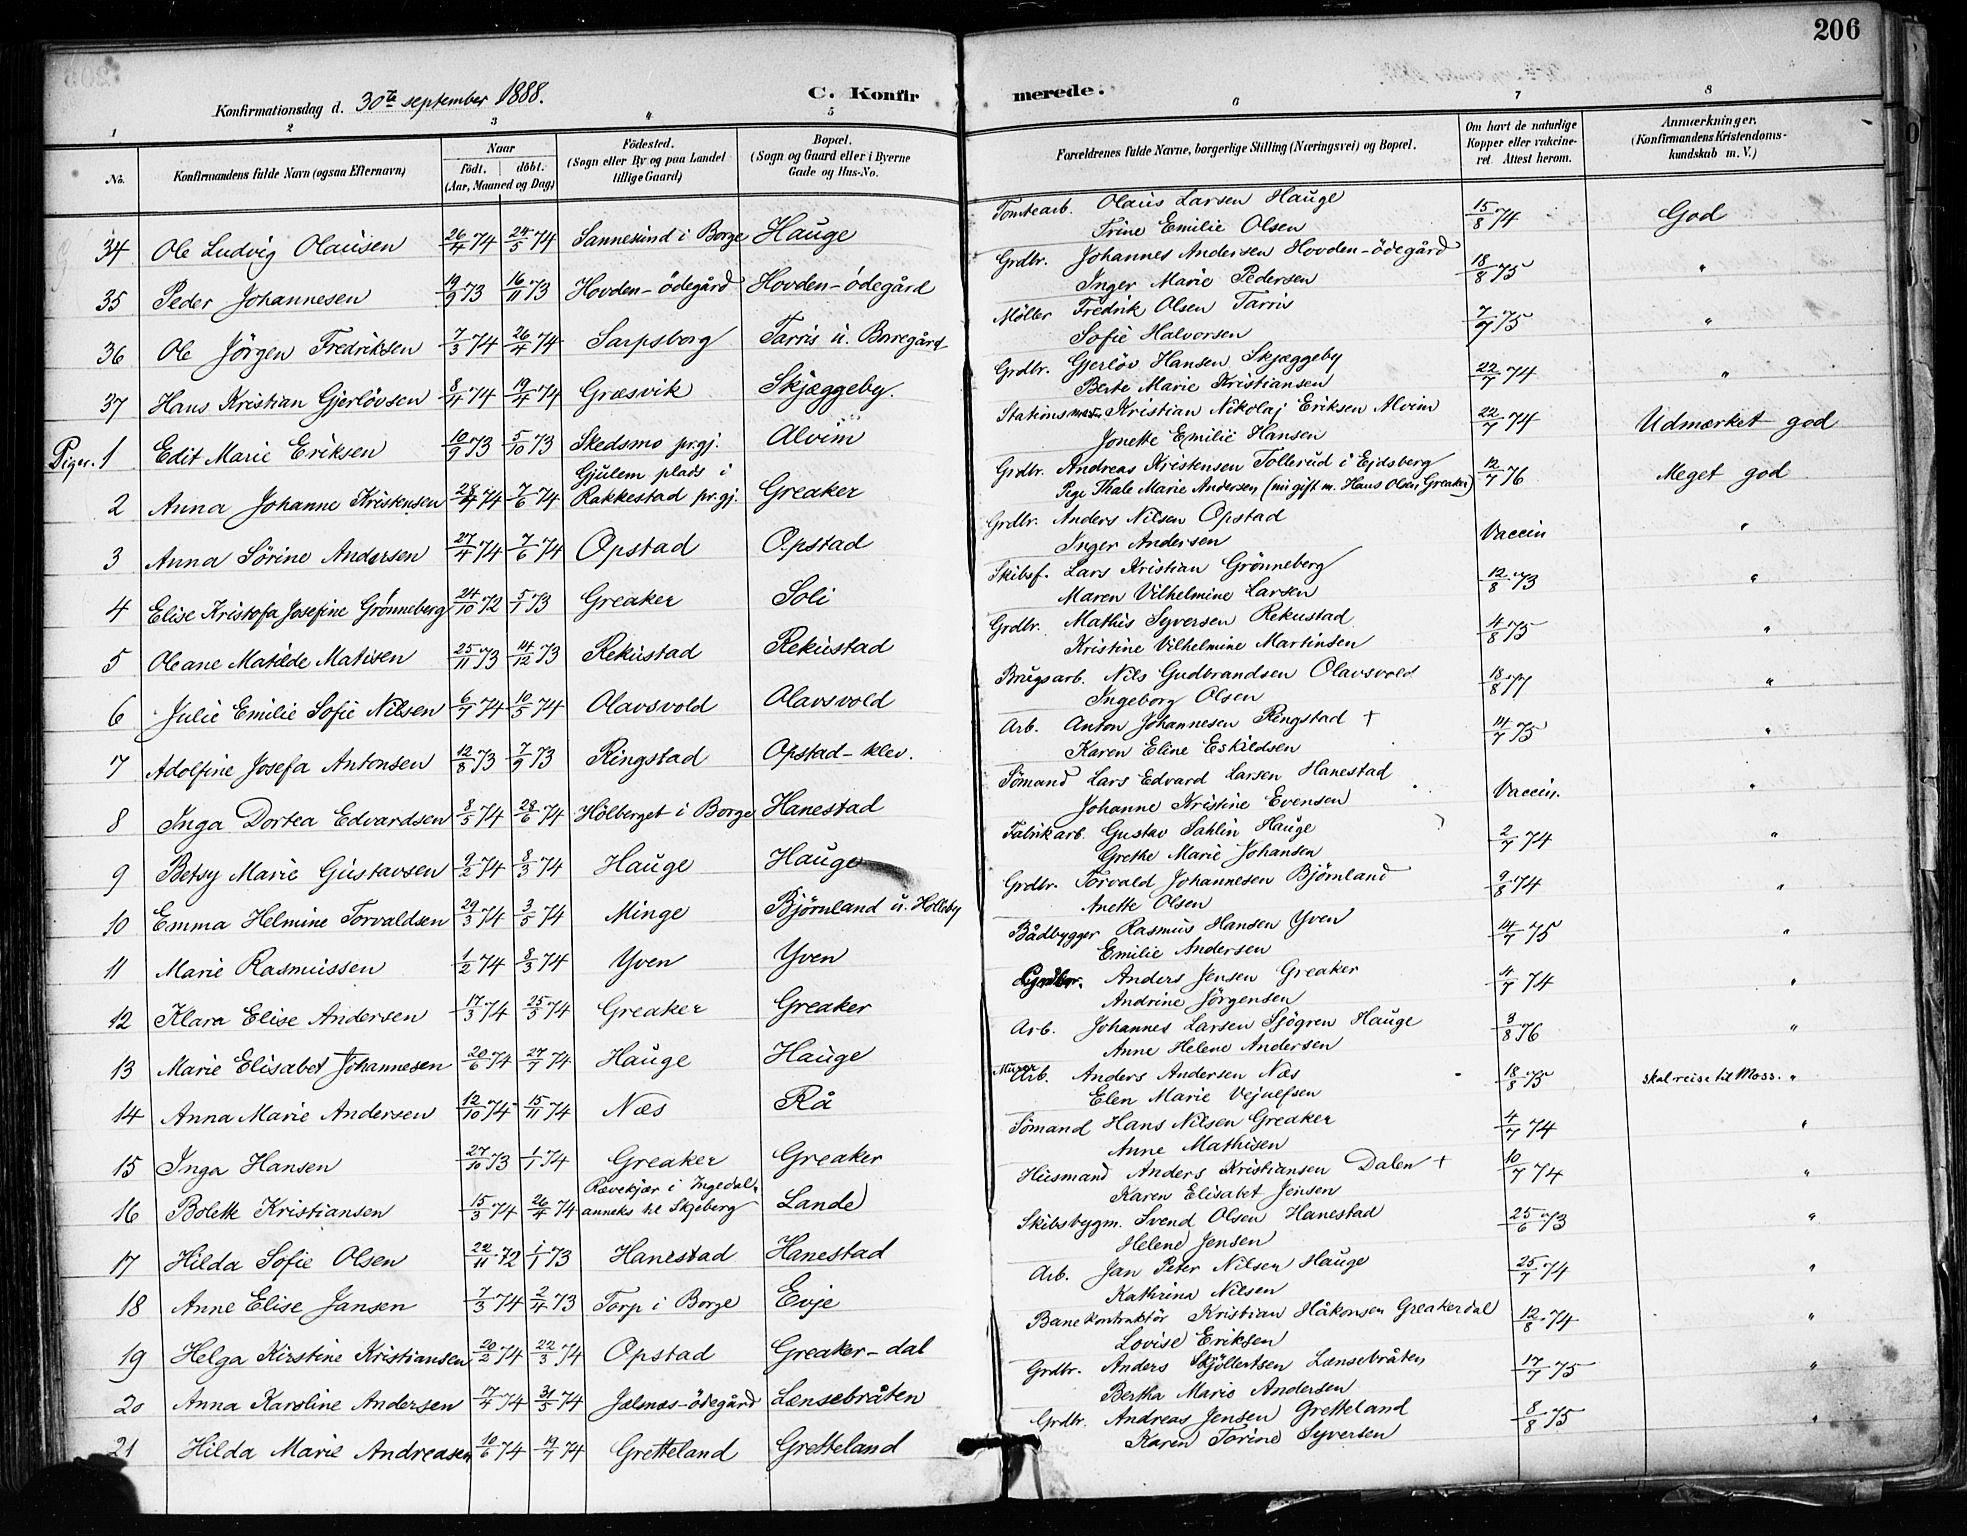 206
Konfirmationsdag d. 30te september 1888. C. Konfirmerede.
1 2 3 4 5 6 7 8
No. Konfirmandens fulde Navn (ogsaa Efternavn) Naar født. døbt. (Aar, Maaned og Dag) Fødested. (Sogn eller By og paa Landet tillige Gaard) Bopæl. (Sogn og Gaard eller i Byerne Gade og Hus-No. Forældrenes fulde Navne, borgerlige Stilling (Næringsvei) og Bopæl. Om havt de naturlige Kopper eller vakcineret. Attest herom. Anmærkninger. (Konfirmandens Kristendomskundskab m. V.)
34 Ole Ludvig Olausen 26/4 74 24/5 74 Sannesund i Borge Hauge Tomtearb. Olaus Larsen Hauge 15/8 74 God
Trine Emilie Olsen
35 Peder Johannesen 19/9 73 16/11 73 Hovden-ödegård Hovden-ödegård Grdbr. Johannes Andersen Hovden-ödegård 18/8 75 "
Inger Marie Pedersen
36 Ole Jörgen Fredriksen 7/3 74 26/4 74 Sarpsborg Tarris u. Borregård Möller Fredrik Olsen Tarris 7/9 75 "
Sofie Halvorsen
37 Hans Kristian Gjerlövsen 8/4 74 19/4 74 Græsvik Skjæggeby. Grdbr. Gjerlöv Hansen Skjæggeby 22/7 74 "
Berte Marie Kristiansen
Piger. 1 Edit Marie Eriksen 10/9 73 5/10 73 Skedsmo pr.gj. Alvim Stationsmester Kristian Nikolaj Eriksen Alvim 22/7 74 Udmærket god
Jonette Emilie Hansen
2 Anna Johanne Kristensen 28/4 74 7/6 74 Gjulem plads i Rakkestad pr.gj. Greaker Grdbr. Andreas Kristensen Tollerud i Ejdsberg 12/7 76 Meget god
Pige Thale Marie Andersen (nu gift m. Hans Olsen Greaker)
3 Anna Sörine Andersen 27/4 74 7/6 74 Opstad Opstad Grdbr. Anders Nilsen Opstad Vaccin "
Inger Andersen
4 Elise Kristofa Josefine Grönneberg 24/10 72 5/1 73 Greaker Soli Skibsf. Lars Kristian Grönneberg 12/8 73 "
Maren Vilhelmine Larsen
5 Oleane Matilde Matisen 25/11 73 14/12 73 Rekustad Rekustad Grdbr. Mathis Syversen Rekustad 4/8 75 "
Kristine Vilhelmine Martinsen
6 Julie Emilie Sofie Nilsen 6/4 74 10/5 74 Olavsvold Olavsvold Brugsarb. Nils Gudbrandsen Olavsvold 18/8 77 "
Ingeborg Olsen
7 Adolfine Josefa Antonsen 12/8 73 7/9 73 Ringstad Opstad-klev. Arb. Anton Johannesen Ringstad + 14/7 75 "
Karen Eline Eskildsen
8 Inga Dortea Edvardsen 8/5 74 28/6 74 Hölberget i Borge Hanestad Sömand Lars Edvard Larsen Hanestad Vaccin. "
Johanne Kristine Evensen
9 Betsy Marie Gustavsen 9/2 74 8/3 74 Hauge Hauge Fabrikarb. Gustav Sahlin Hauge 2/7 74 "
Grethe Marie Johansen
10 Emma Helmine Torvaldsen 29/3 74 3/5 74 Minge Björnland u. Holleby Grdbr. Torvald Johannesen Björnland 9/8 74 "
Anette Olsen
11 Marie Rasmussen 1/2 74 8/3 74 Yven Yven Bådbygger Rasmus Hansen Yven 14/7 75 "
Emilie Andersen
12 Klara Elise Andersen 17/3 74 25/5 74 Greaker Greaker Grdbr. Anders Jensen Greaker 4/7 74 "
Andrine Jörgensen
13 Marie Elisabet Johannesen 20/6 74 27/7 74 Hauge Hauge Arb. Johannes Larsen Sjögren Hauge 3/8 76 "
Anne Helene Andersen
14 Anna Marie Andersen 12/10 74 15/11 74 Næs Rå Murer Arb. Anders Andersen Næs 18/8 75 skal reise til Moss. "
Elen Marie Vejulfsen
15 Inga Hansen 27/10 73 1/1 74 Greaker Greaker Sömand Hans Nilsen Greaker 4/7 74 "
Anne Mathisen
16 Bolette Kristiansen 15/3 74 26/4 74 Rævekjær i Ingedal, anneks til Skjeberg Lande Husmand Anders Kristiansen Dalen + 10/7 74 "
Karen Elisabet Jensen
17 Hilda Sofie Olsen 22/11 72 1/1 73 Hanestad Hanestad Skibsbygm. Svend Olsen Hanestad 25/6 73 "
Helene Jensen
18 Anne Elise Jansen 7/3 74 2/4 73 Torp i Borge Evje Arb. Jan Peter Nilsen Hauge 25/7 74 "
Kathrina Nilsen
19 Helga Kirstine Kristiansen 20/2 74 22/3 74 Opstad Greaker-dal Banekontraktör Kristian Håkonsen Greakerdal 12/8 74 "
Lovise Eriksen
20 Anna Karoline Andersen 17/4 74 31/5 74 Jelmes-ödegård Lensebråten Grdbr. Anders Skjöllertsen Lænsebråten 17/7 75 "
Bertha Marie Andersen
21 Hilda Marie Andreasen 10/6 74 19/7 74 Gretteland Gretteland Grdbr. Andreas Jensen Gretteland 8/8 75 "
Karen Torine Syversen